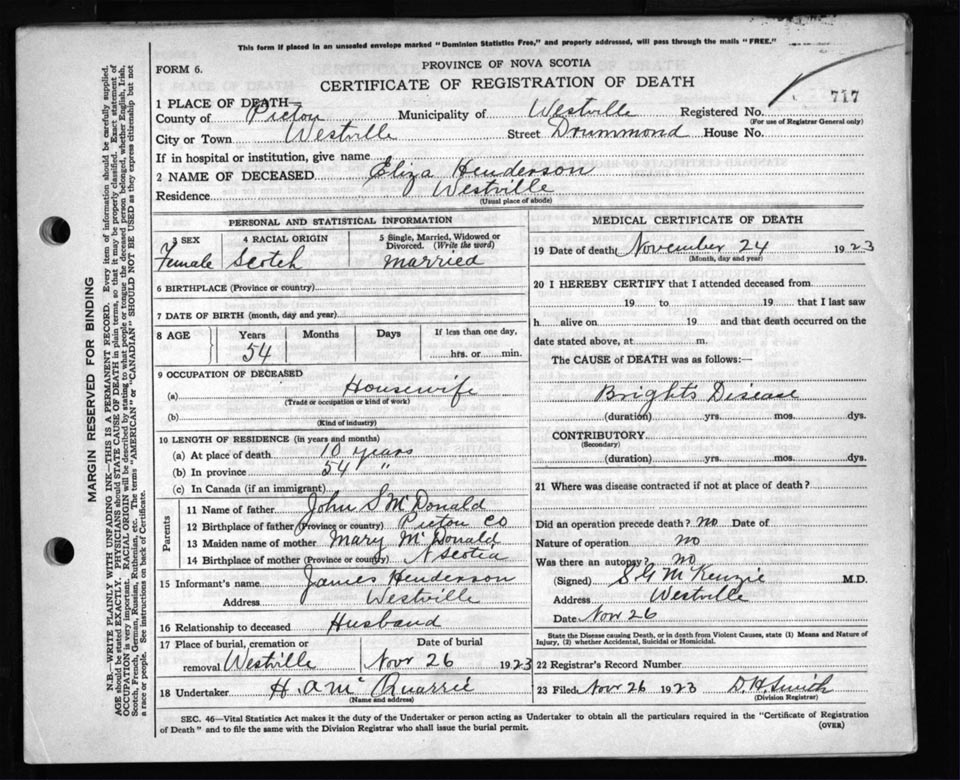 This form if placed in an unsealed envelope marked "Dominion Statistics Free," and properly addressed, will pass through the mails "FREE."
FORM 6.
PROVINCE OF NOVA SCOTIA
CERTIFICATE OF REGISTRATION OF DEATH
717
1 PLACE OF DEATH—
County of Pictou Municipality of Westville Registered No.
(For use of Registrar General only)
City or Town Westville Street Drummond House No.
If in hospital or institution, give name
2 NAME OF DECEASED Eliza Henderson
Residence Westville
(Usual place of abode)
PERSONAL AND STATISTICAL INFORMATION
3 SEX 4 RACIAL ORIGIN 5 Single, Married, Widowed or Divorced. (Write the word)
Female Scotch married
6 BIRTHPLACE (Province or country)
7 DATE OF BIRTH (month, day and year)
8 AGE Years Months Days If less than one day,
54 hrs. or min.
9 OCCUPATION OF DECEASED
(a) Housewife
(Trade or occupation or kind of work)
(b)
(Kind of industry)
10 LENGTH OF RESIDENCE (in years and months)
(a) At place of death 10 years
(b) In province 54 "
(c) In Canada (if an immigrant)
Parents
11 Name of father John S McDonald
12 Birthplace of father (Province or country) Pictou Co
13 Maiden name of mother Mary McDonald
14 Birthplace of mother (Province or country) N Scotia
15 Informant's name James Henderson
Address Westville
16 Relationship to deceased Husband
17 Place of burial, cremation or removal Westville
Date of burial
Nov 26 1923
18 Undertaker H. A McQuarrie
(Name and address)
MEDICAL CERTIFICATE OF DEATH
19 Date of death November 24 1923
(Month, day and year)
20 I HEREBY CERTIFY that I attended deceased from
19 to 19 that I last saw
h alive on 19 and that death occurred on the
date stated above, at m.
The CAUSE of DEATH was as follows:—
Bright's Disease
(duration) yrs. mos. dys.
CONTRIBUTORY
(Secondary)
(duration) yrs. mos. dys.
21 Where was disease contracted if not at place of death?
Did an operation precede death? no Date of
Nature of operation no
Was there an autopsy? no
(Signed) S G McKenzie M.D.
Address Westville
Date Nov 26
State the Disease causing Death, or in death from Violent Causes, state (1) Means and Nature of
Injury, (2) whether Accidental, Suicidal or Homicidal.
22 Registrar's Record Number
23 Filed Nov 26 1923 D. H. Smith
(Division Registrar)
SEC. 46—Vital Statistics Act makes it the duty of the Undertaker or person acting as Undertaker to obtain all the particulars required in the "Certificate of Registration
of Death" and to file the same with the Division Registrar who shall issue the burial permit.
(OVER)
MARGIN RESERVED FOR BINDING
N.B.—WRITE PLAINLY WITH UNFADING INK—THIS IS A PERMANENT RECORD. Every item of information should be carefully supplied.
AGE should be stated EXACTLY. PHYSICIANS should STATE CAUSE OF DEATH in plain terms, so that it may be properly classified. Exact statement of
OCCUPATION is very important. RACIAL ORIGIN will be described by stating to what people or tongue the deceased person belonged, whether English, Irish,
Scotch, French, German, Russian, Ruthenian, etc. The terms "AMERICAN" or "CANADIAN" SHOULD NOT BE USED as they express citizenship but not
a race or people. See instructions on back of Certificate.